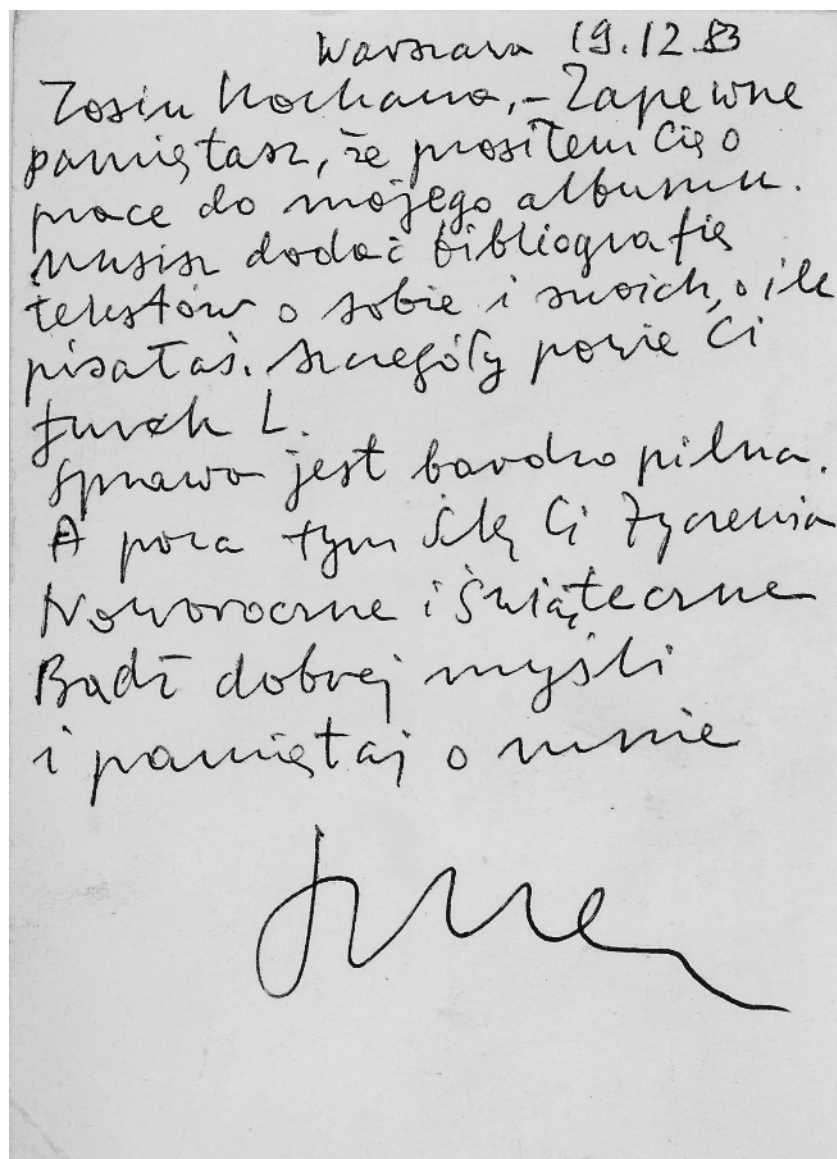 Warszawa 19.12.83
Zosiu Kochana, – Zapewne
pamiętasz, że prosiłem Cię o
pracę do mojego albumu.
Musisz dodać bibliografię
tekstów o sobie i swoich, o ile
pisałaś. Szczegóły powie Ci
Jurek L.
Sprawa jest bardzo pilna.
A poza tym ślę Ci życzenia
Noworoczne i Świąteczne
Bądź dobrej myśli
i pamiętaj o mnie